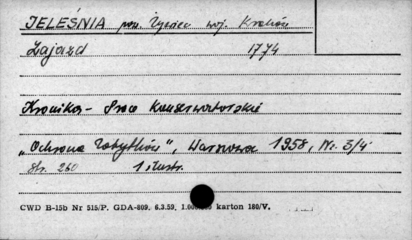 JELEŚNIA pow. Żywiec woj. Kraków
Zajazd 1774
Kronika - Prace Konserwatorskie
"Ochrona Zabytków", Warszawa 1958, Nr. 3/4
Str. 260 1 ilustr.
CWD B-15b Nr 515/P. GDA-809. 6.3.59. karton 180/V.